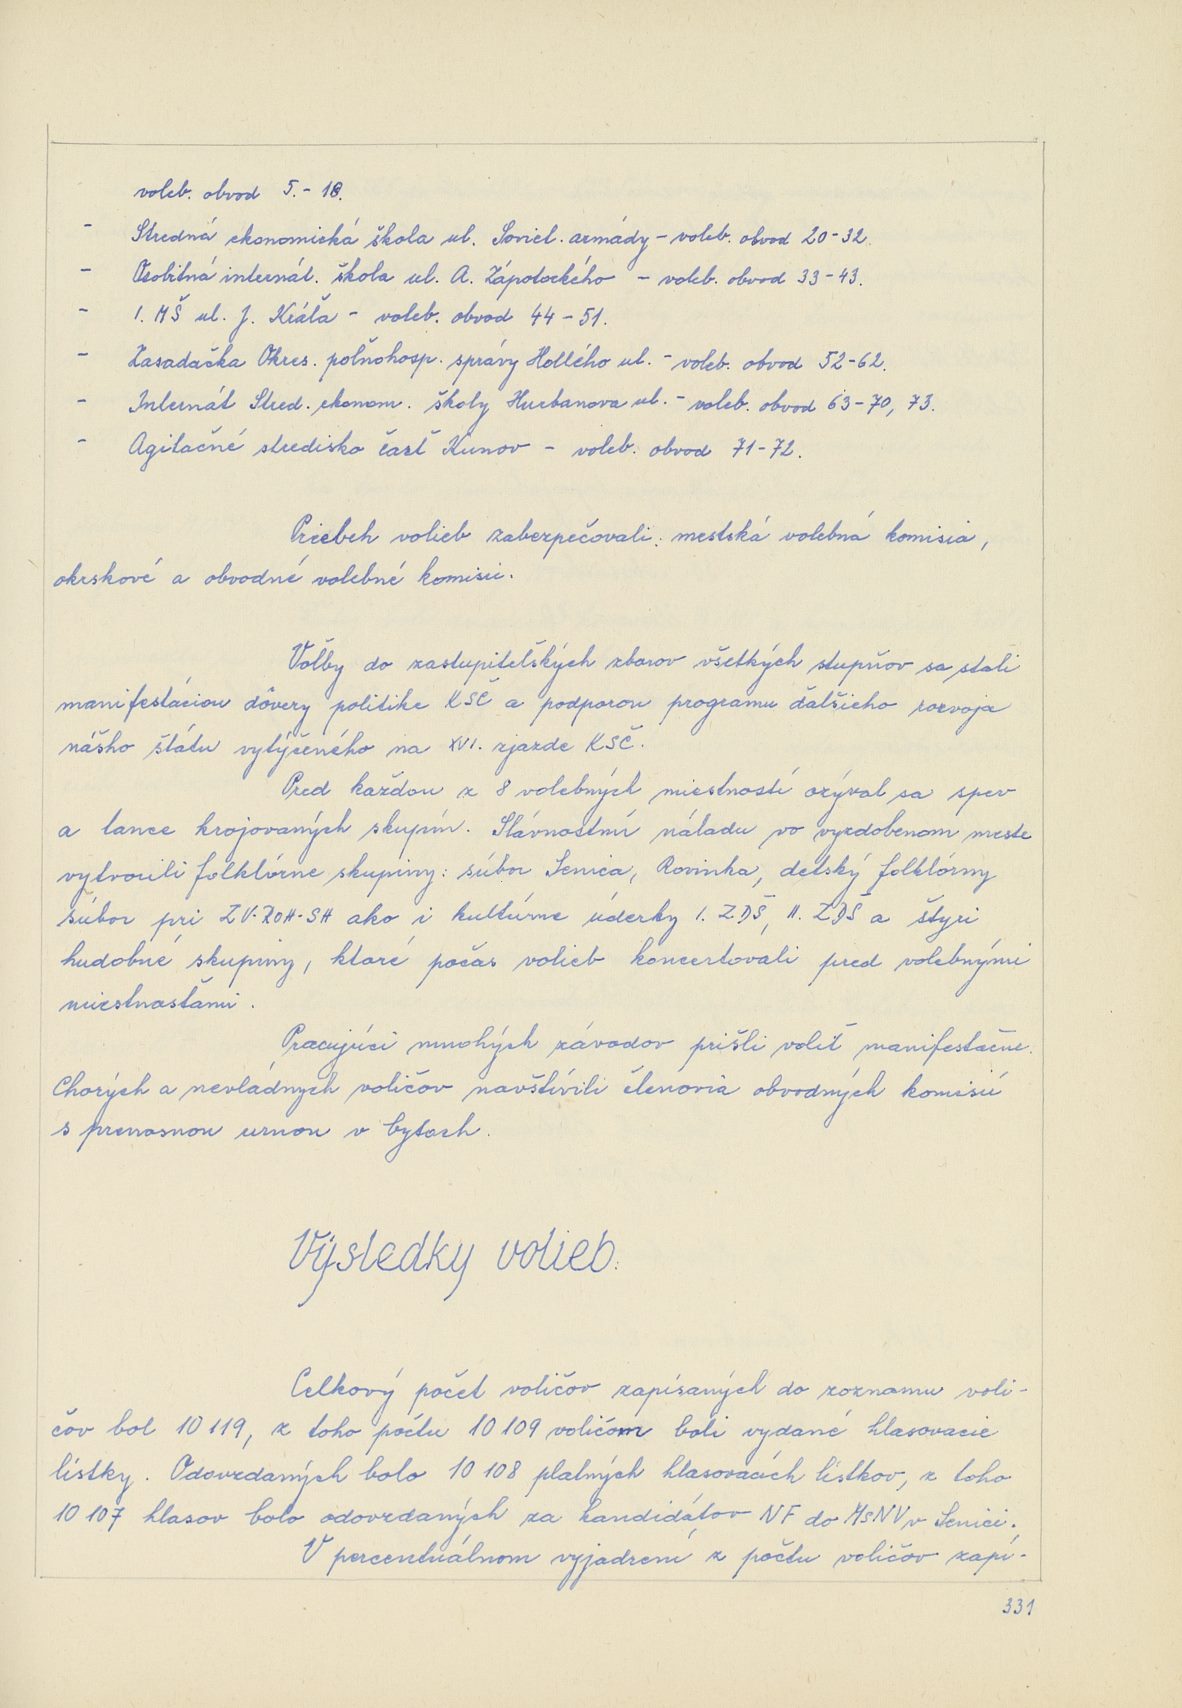 voleb. obvod 5.- 18.
- Stredná ekonomická škola ul. Soviet. armády - voleb. obvod 20-32.
- Osobitná internát. škola ul. A. Zápotockého - voleb. obvod 33-43.
- I. MŠ ul. J. Kráľa - voleb. obvod 44-51.
- Zasadačka Okres. poľnohosp. správy Hollého ul. - voleb. obvod 52-62.
- Internát Stred. ekonom. školy Hurbanova ul. - voleb. obvod 63-70, 73.
- Agitačné stredisko časť Kunov - voleb. obvod 71-72.
Priebeh volieb zabezpečovali: mestská volebná komisia,
okrskové a obvodné volebné komisie.
Voľby do zastupiteľských zborov všetkých stupňov sa stali
manifestáciou dôvery politike KSČ a podporou programu ďalšieho rozvoja
nášho štátu vytýčeného na XVI. zjazde KSČ.
Pred každou z 8 volebných miestností ozýval sa spev
a tance krojovaných skupín. Slávnostnú náladu vo vyzdobenom meste
vytvorili folklórne skupiny: súbor Senica, Rovinka, detský folklórny
súbor pri ZV-ROH-SH ako i kultúrne úderky I. ZDŠ, II. ZDŠ a štyri
hudobné skupiny, ktoré počas volieb koncertovali pred volebnými
miestnosťami.
Pracujúci mnohých závodov prišli voliť manifestačne.
Chorých a nevládnych voličov navštívili členovia obvodných komisií
s prenosnou urnou v bytoch.
Výsledky volieb:
Celkový počet voličov zapísaných do zoznamu voli-
čov bol 10 119, z toho počtu 10 109 voličom boli vydané hlasovacie
lístky. Odovzdaných bolo 10 108 platných hlasovacích lístkov, z toho
10 107 hlasov bolo odovzdaných za kandidátov NF do MsNV v Senici.
V percentuálnom vyjadrení z počtu voličov zapí-
331